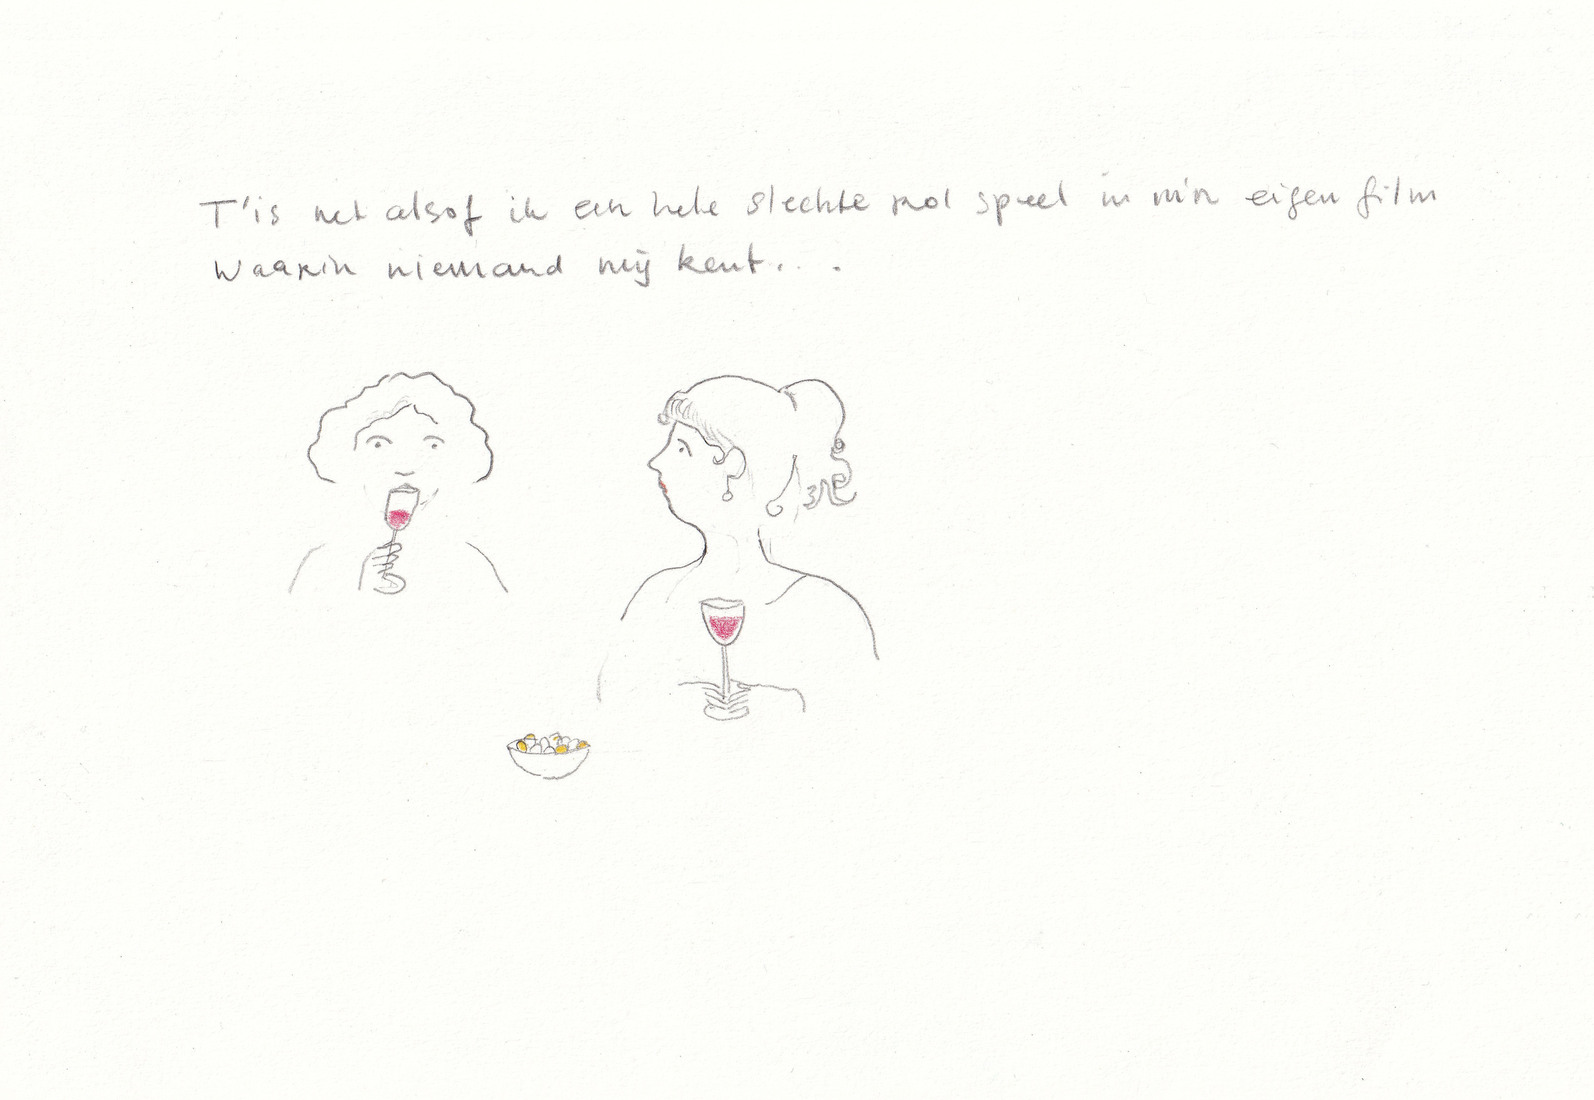 T'is net alsof ik een hele slechte rol speel in m'n eigen film
waarin niemand mij kent...